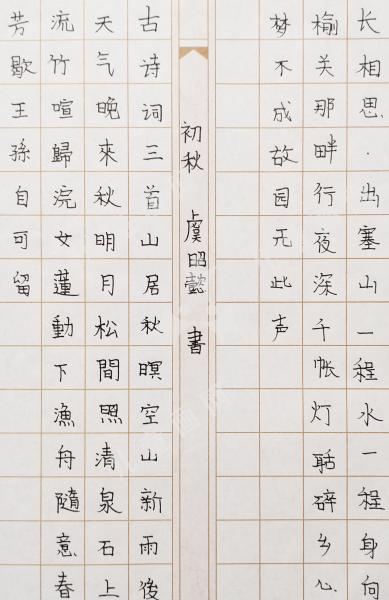 长相思·出塞山一程水一程身向
榆关那畔行夜深千帐灯聒碎乡心
梦不成故园无此声
初秋 虞昭懿 書
古诗词三首山居秋暝空山新雨後
天气晚來秋明月松間照清泉石上
流竹喧歸浣女蓮動下漁舟隨意春
芳歇王孫自可留